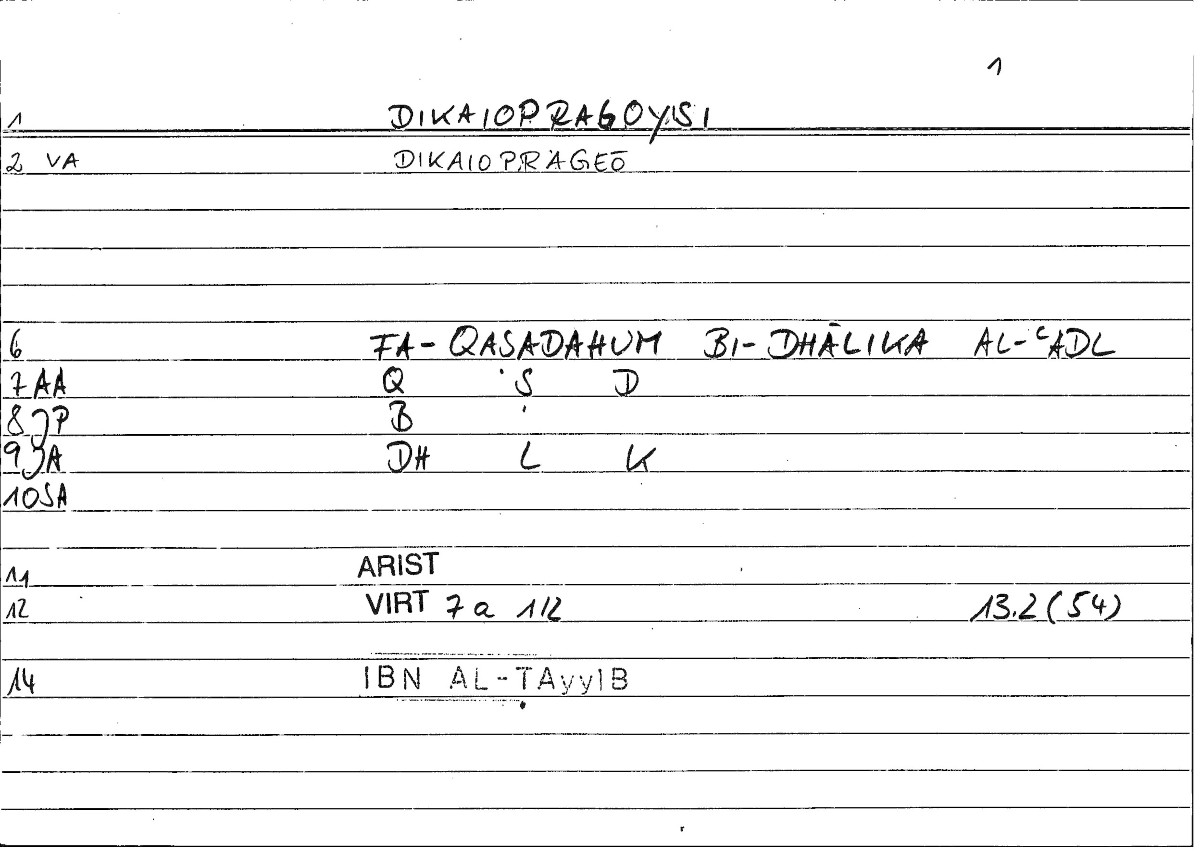 1
1 DIKAIOPRAGOYSI
2 VA DIKAIOPRAGEŌ
6 FA-QASADAHUM BI-DHĀLIKA AL-ʿADL
7 AA Q Ṣ D
8 JP B
9 JA DH L K
10 SA
11 ARIST
12 VIRT 7a 1/2 13.2 (54)
14 IBN AL-ṬAyyIB